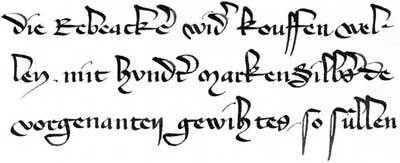 die Rebeacker wider kouffen wel-
len . mit hvndert marken silbers de
vorgenanten gewihtes so súllen